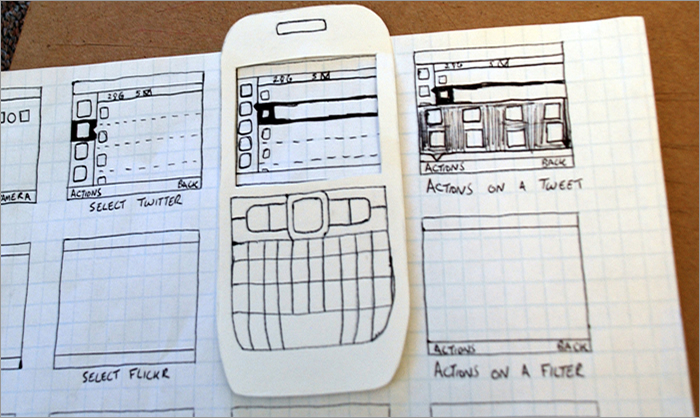 AMERA
ACTIONS BACK
SELECT TWITTER
ACTIONS BACK
ACTIONS ON A TWEET
SELECT FLICKR
ACTIONS BACK
ACTIONS ON A FILTER